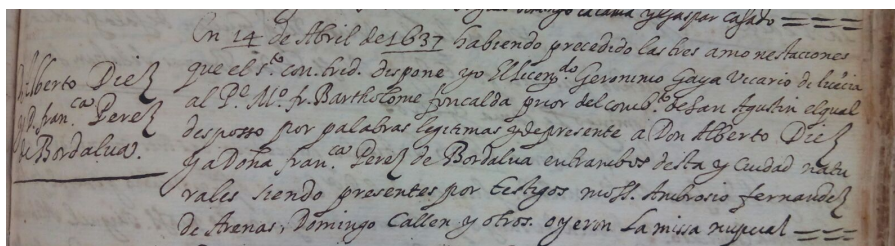 Domingo Lacasta y Gaspar Casado
En 14 de Abril de 1637 habiendo precedido las tres amonestaciones
que el s.to con. trid. dispone yo el licen.do Geronimo Gaya Vicario di licēcia
al P.e M.o fr. Bartholome foncalda prior del conb.to de San Agustin el qual
desposto por palabras legitimas y de presente a Don Alberto Diez
y a Doña fran.ca Perez de Bordalua entrambos desta Ciudad natu
rales siendo presentes por testigos moss. Ambrosio fernandez
de Arenas, Domingo Callen y otros. oyeron la missa nupcial
Alberto Diez
y D. fran.ca Perez
de Bordalua.